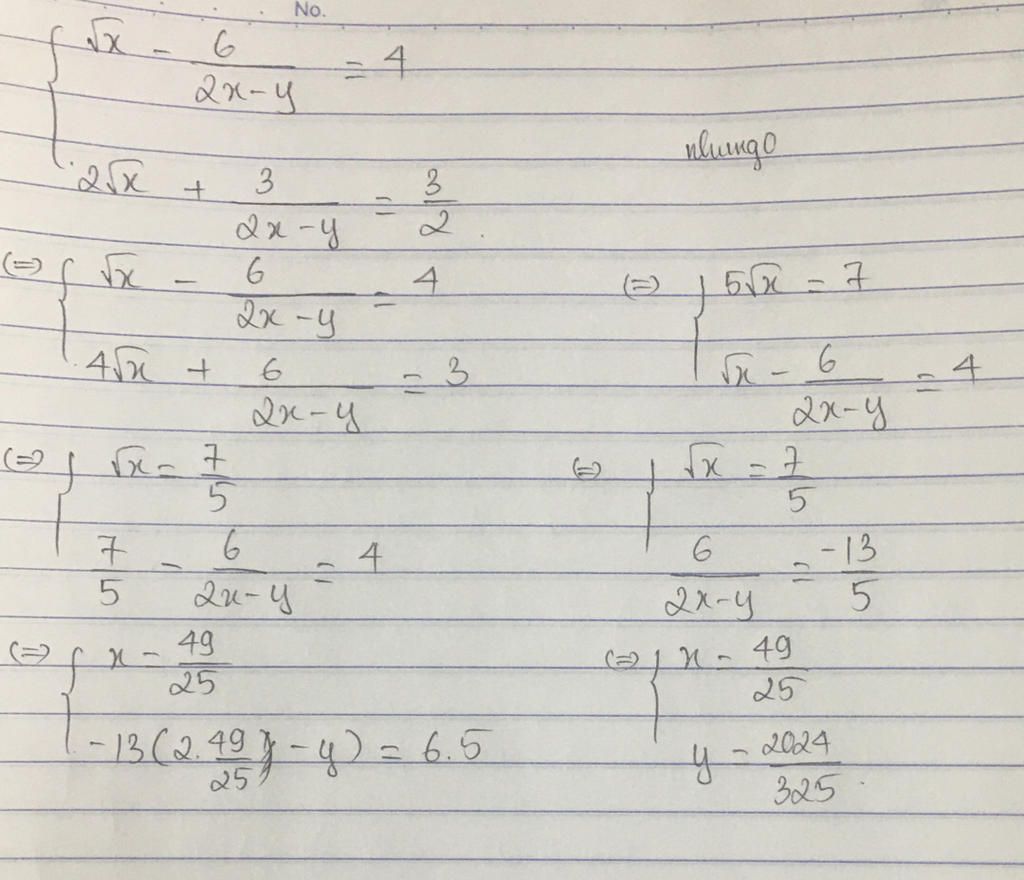 No.
{ √x - 6/(2x-y) = 4
nhung0
2√x + 3/(2x-y) = 3/2.
(=) { √x - 6/(2x-y) = 4
4√x + 6/(2x-y) = 3
(=) { 5√x = 7
√x - 6/(2x-y) = 4
(=) { √x = 7/5
7/5 - 6/(2x-y) = 4
(=) { √x = 7/5
6/(2x-y) = -13/5
(=) { x = 49/25
-13(2.49/25 - y) = 6.5
(=) { x = 49/25
y = 2024/325.